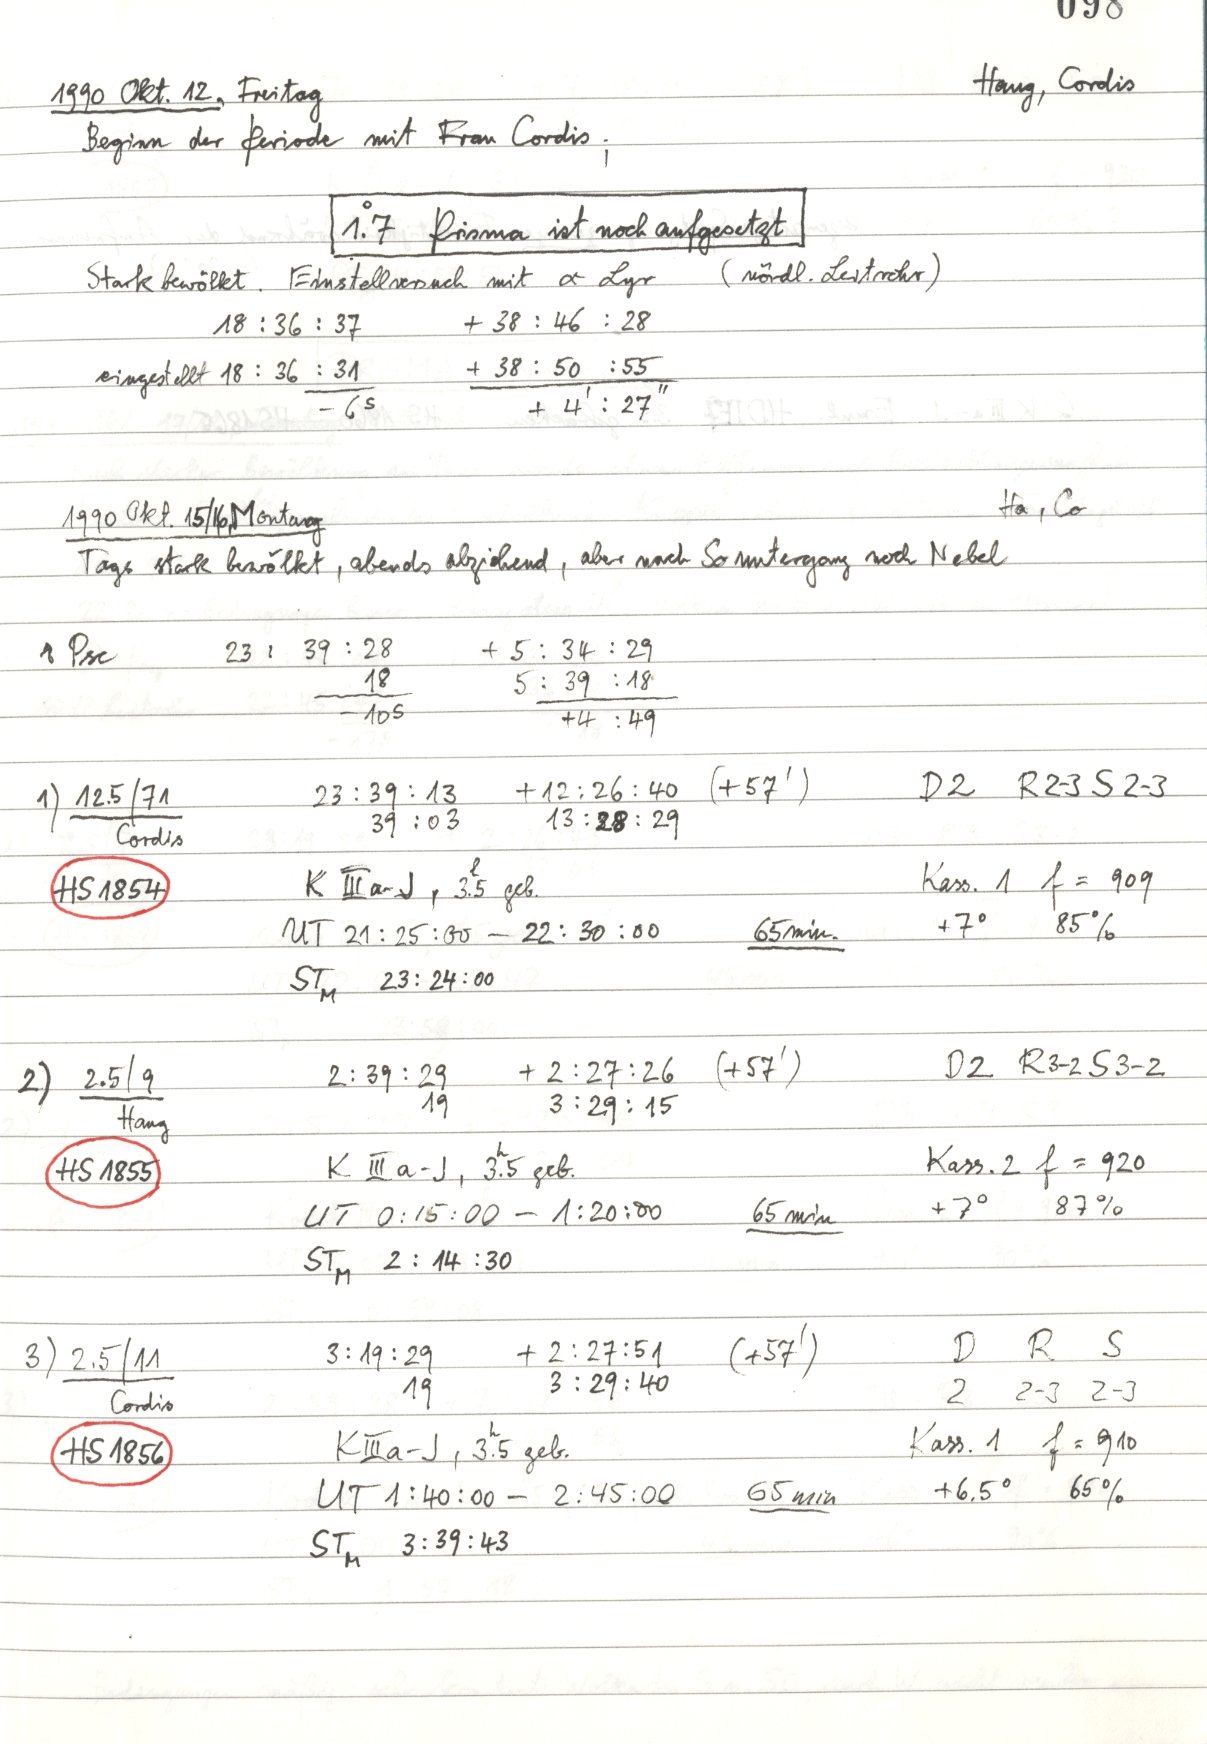 098
1990 Okt. 12, Freitag Haug, Cordis
Beginn der Periode mit Frau Cordis;
1.°7 Prisma ist noch aufgesetzt
Stark bewölkt. Einstellversuch mit α Lyr (nördl. Leitrohr)
18 : 36 : 37 + 38 : 46 : 28
eingestellt 18 : 36 : 31 + 38 : 50 : 55
- 6s + 4' : 27"
1990 Okt. 15/16, Montag Ha, Co
Tags stark bewölkt, abends abziehend, aber nach So untergang noch Nebel
ι Psc 23 : 39 : 28 + 5 : 34 : 29
18 5 : 39 : 18
- 10s +4 : 49
1) 12.5/71 23 : 39 : 13 +12 : 26 : 40 (+57') D2 R2-3 S2-3
Cordis 39 : 03 13 : 28 : 29
HS 1854 K III a-J, 3.5h geb. Kass. 1 f = 909
UT 21 : 25 : 00 - 22 : 30 : 00 65 min. +7° 85%
STM 23 : 24 : 00
2) 2.5/9 2 : 39 : 29 + 2 : 27 : 26 (+57') D2 R3-2 S3-2
Haug 19 3 : 29 : 15
HS 1855 K III a-J, 3.5h geb. Kass. 2 f = 920
UT 0 : 15 : 00 - 1 : 20 : 00 65 min +7° 87%
STM 2 : 14 : 30
3) 2.5/11 3 : 19 : 29 + 2 : 27 : 51 (+57') D R S
Cordis 19 3 : 29 : 40 2 2-3 2-3
HS 1856 K III a-J, 3.5h geb. Kass. 1 f = 910
UT 1 : 40 : 00 - 2 : 45 : 00 65 min +6.5° 65%
STM 3 : 39 : 43